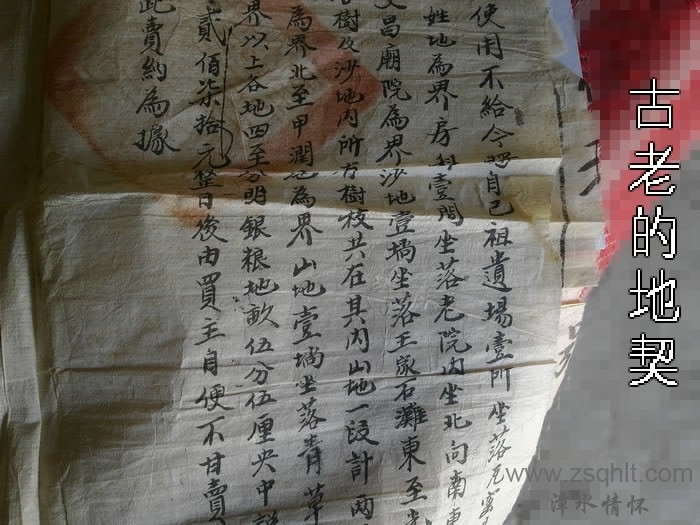 使用不給今將自己祖遺場壹所坐落瓦窰
姓地為界房壹間坐落老院內坐北向南東
文昌廟院為界沙地壹塲坐落王家石灘東至
樹及沙地內所有樹枝共在其內山地一段計兩
為界北至甲潤地為界山地壹塲坐落青草
界以上各地四至分明銀粮地畝伍分伍厘央中說
貳佰柒拾元整日後由買主自便不甘賣
此賣約為據
古老的地契
www.zsqhlt.com
漳水情怀